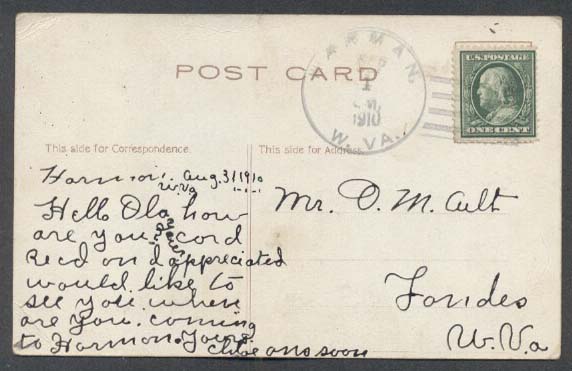 POST CARD
HARMAN,
SEP
1
1910
W. VA.
U.S. POSTAGE
ONE CENT
This side for Correspondence.
This side for Address.
Harmon. Aug. 31 1910
W.Va
Hello Ola how
are you? your cord
Recd and appreciated
would like to
see you. when
are you. coming
to Harmon. Yours.
ans soon
Mr. O. M. Cult
W. Va